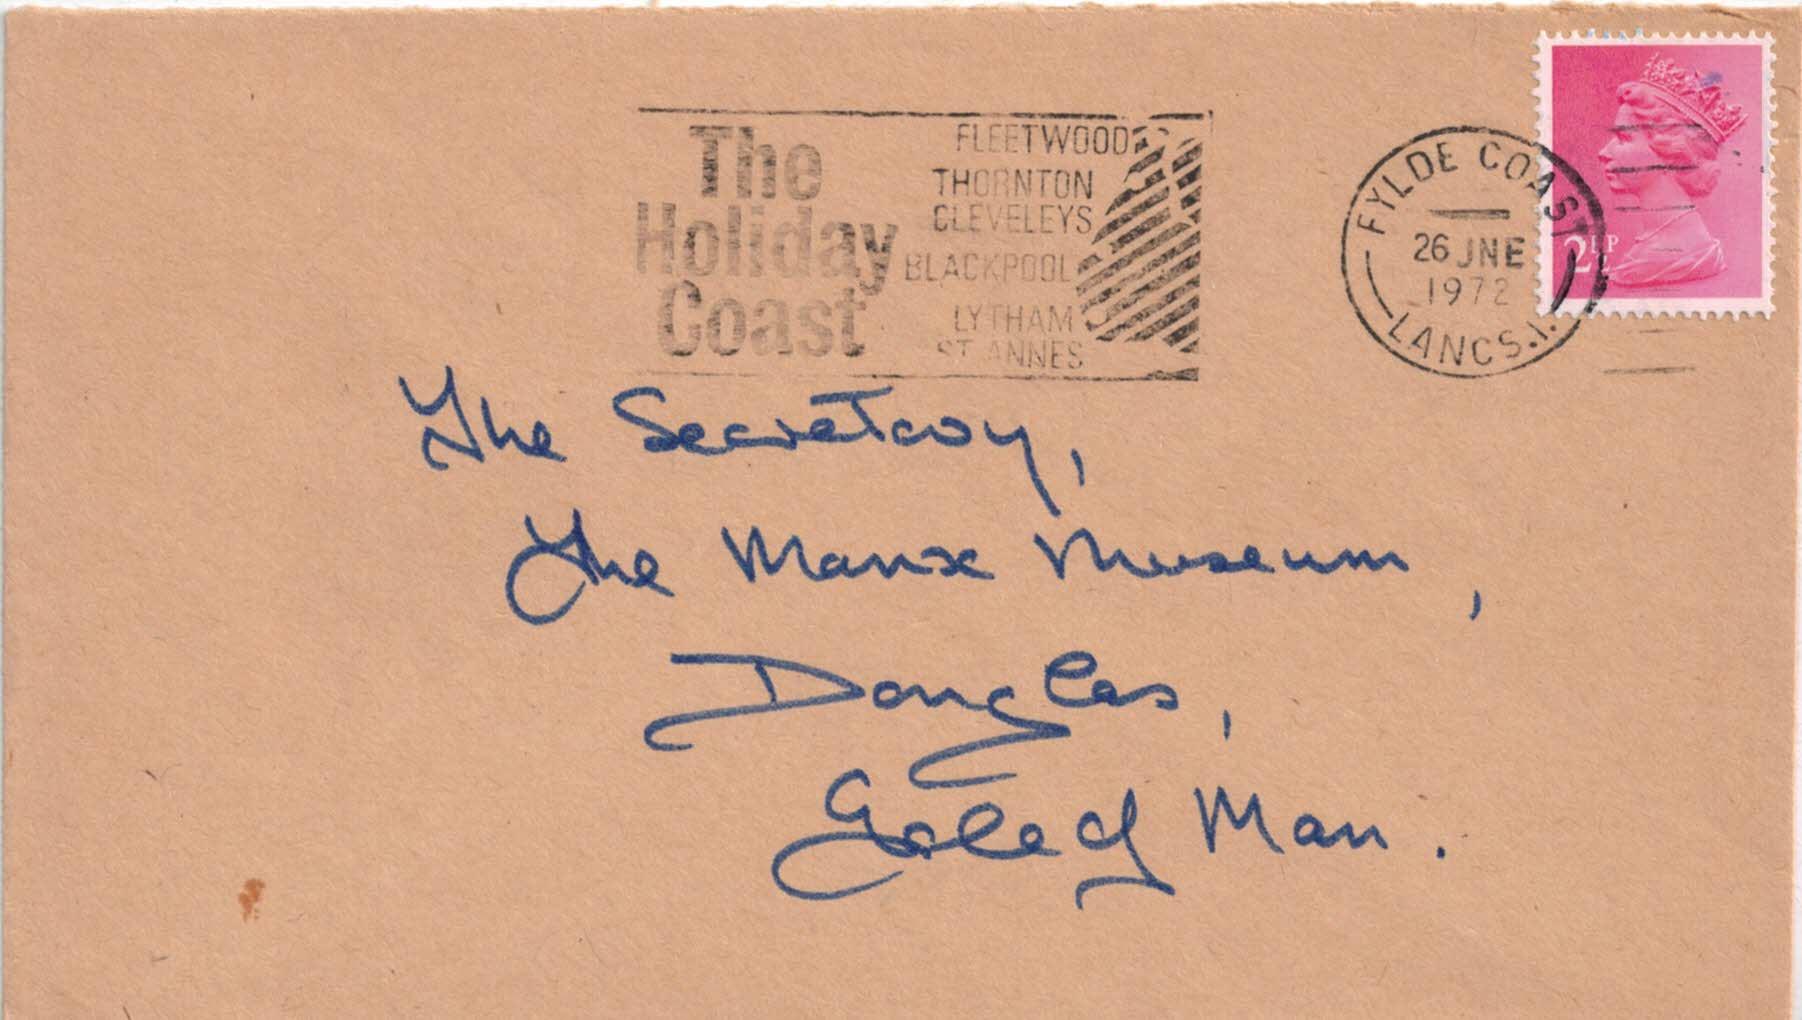 The
Holiday
Coast
FLEETWOOD
THORNTON
CLEVELEYS
BLACKPOOL
LYTHAM
ST ANNES
FYLDE COAST
26 JNE
1972
LANCS.1.
2½P
The Secretary,
The Manx Museum,
Douglas,
Isle of Man.